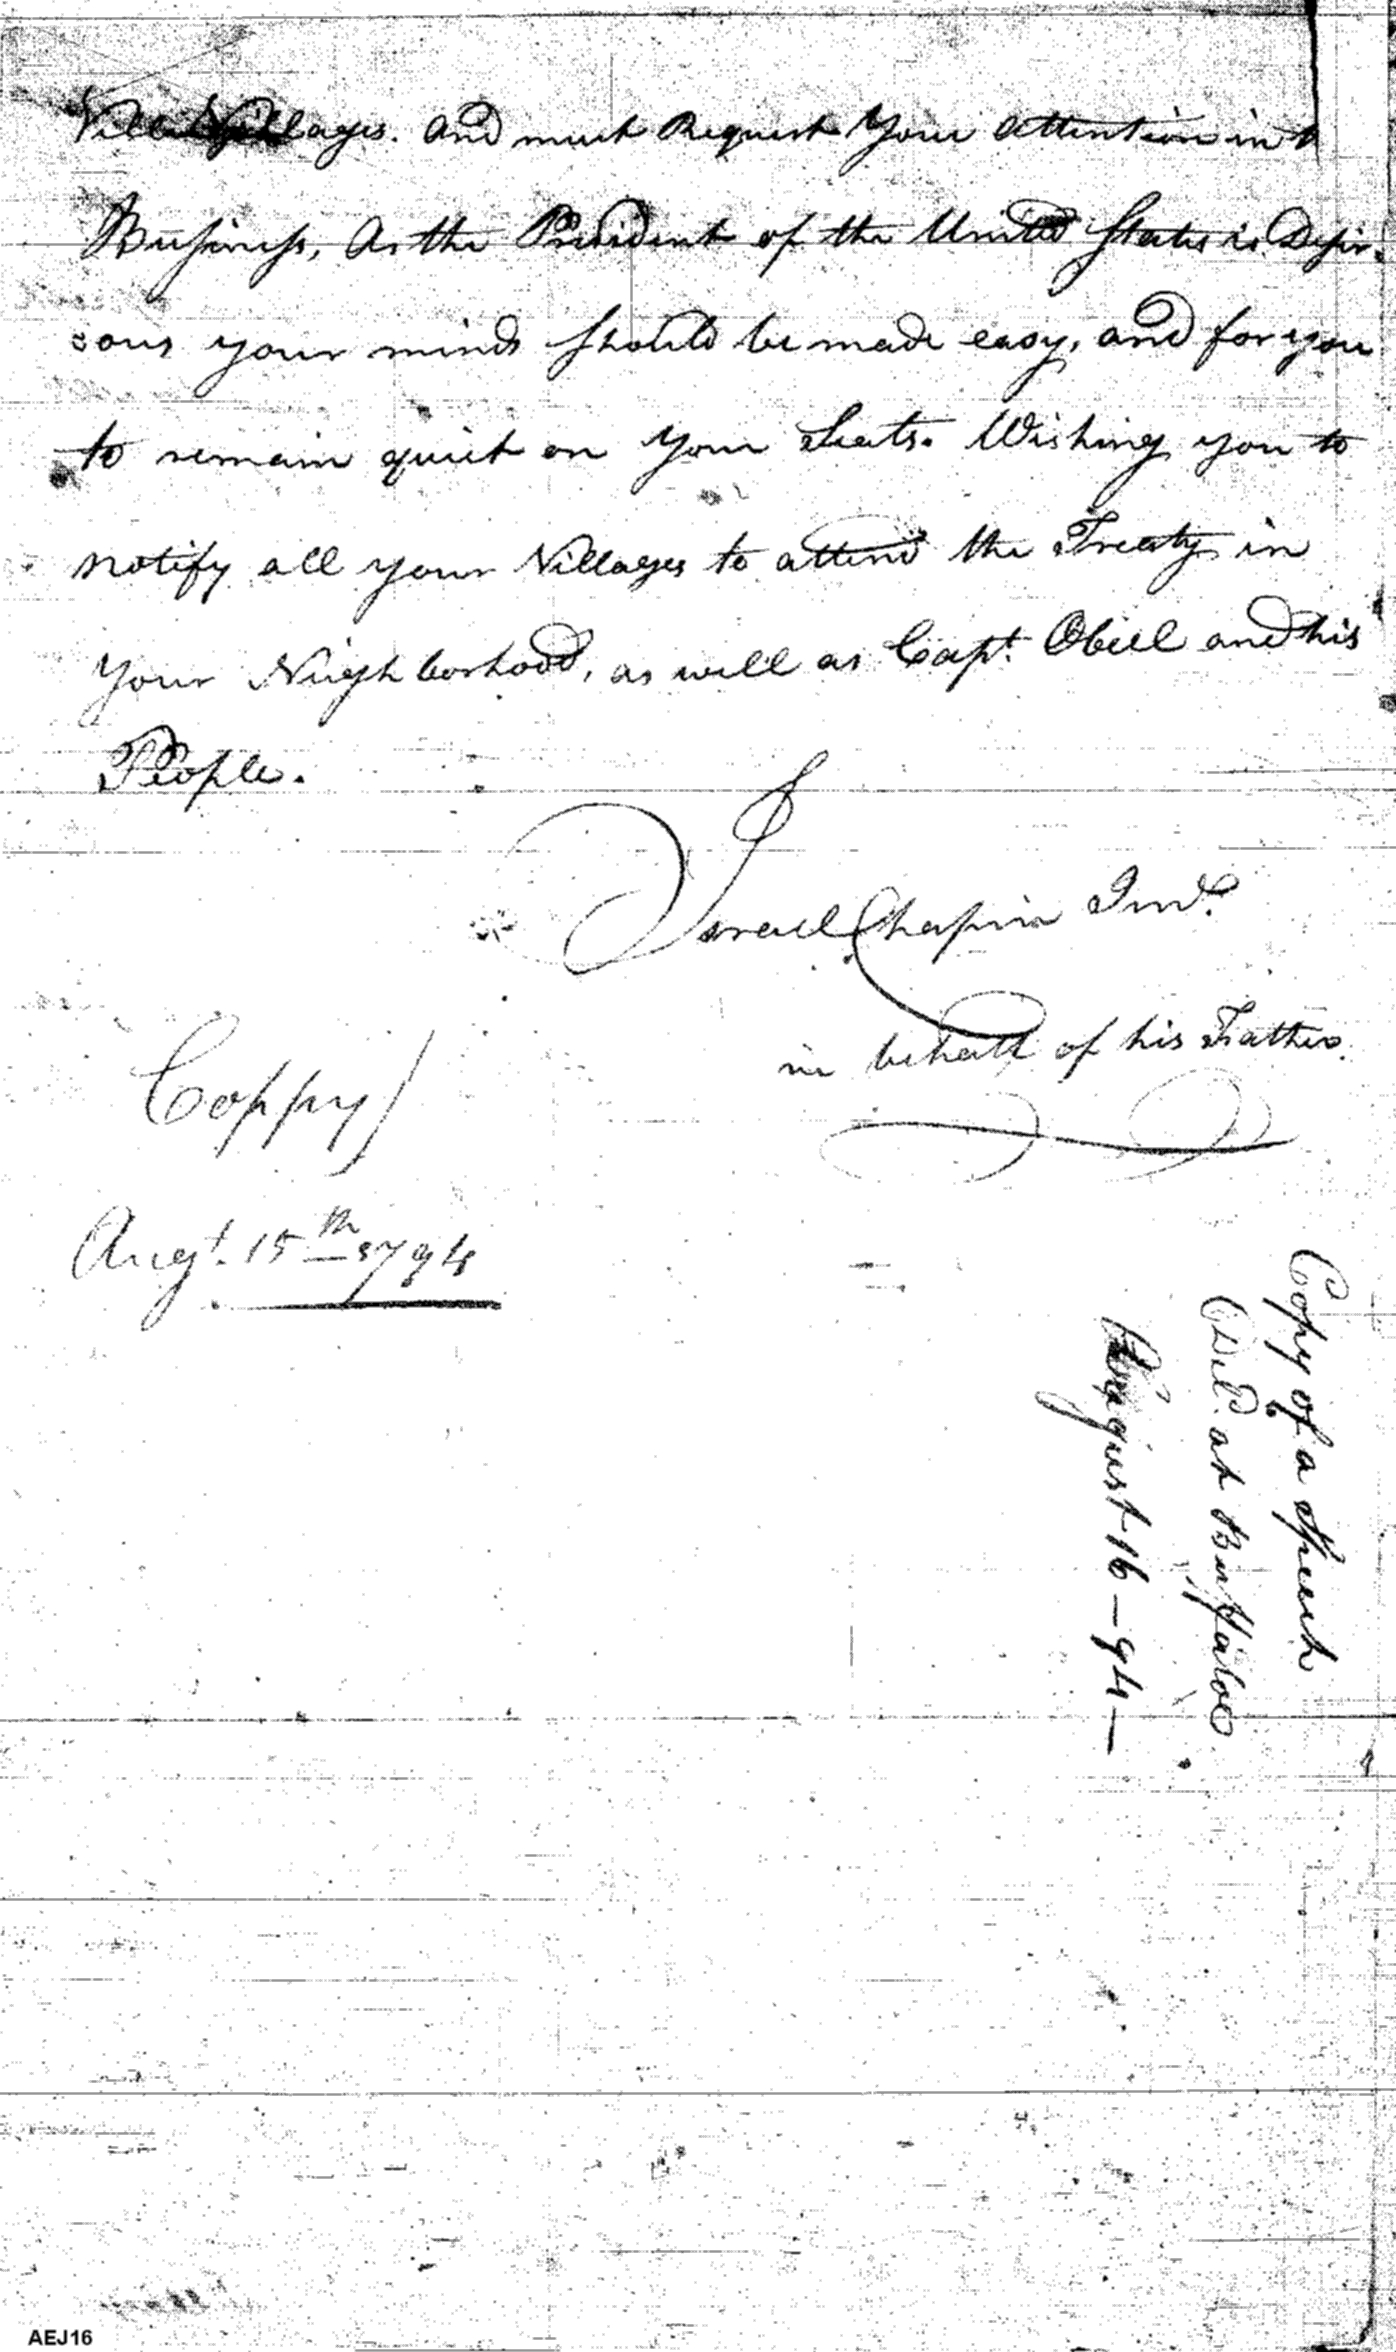 Villages. and must Request Your attention in
Business, As the President of the United States is Desir-
=ous your minds should be made easy, and for you
to remain quiet on Your Seats. Wishing you to
notify all your Villages to attend the Treaty in
Your Neighborhood, as well as Capt. Obeel and his
People.
Israel Chapin Jun.r
in behalf of his Father.
Coppy
Augt. 15th 1794
Copy of a Speech
Deld. at Buffaloe
August 16 — 94 —
AEJ16